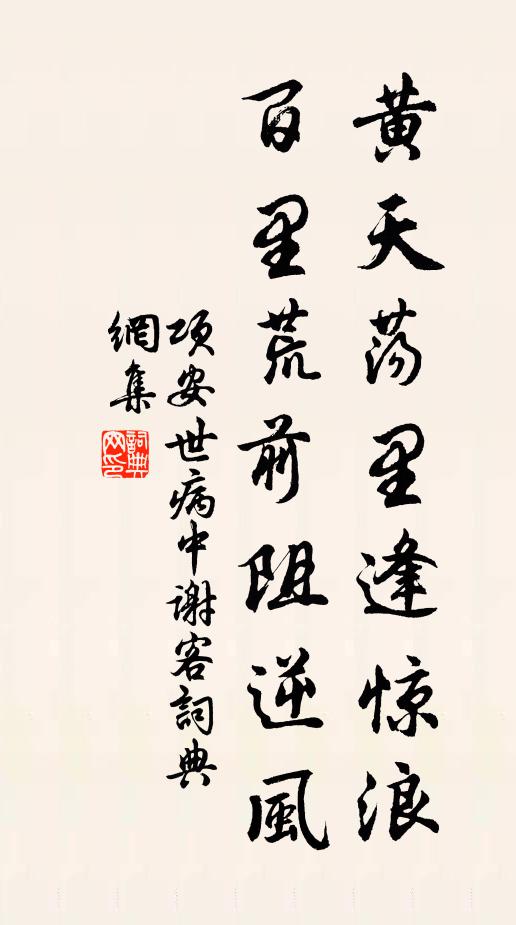 黄天荡里逢惊浪
百里荒前阻逆風
项安世病中谢客詞典
網集
詞典網印